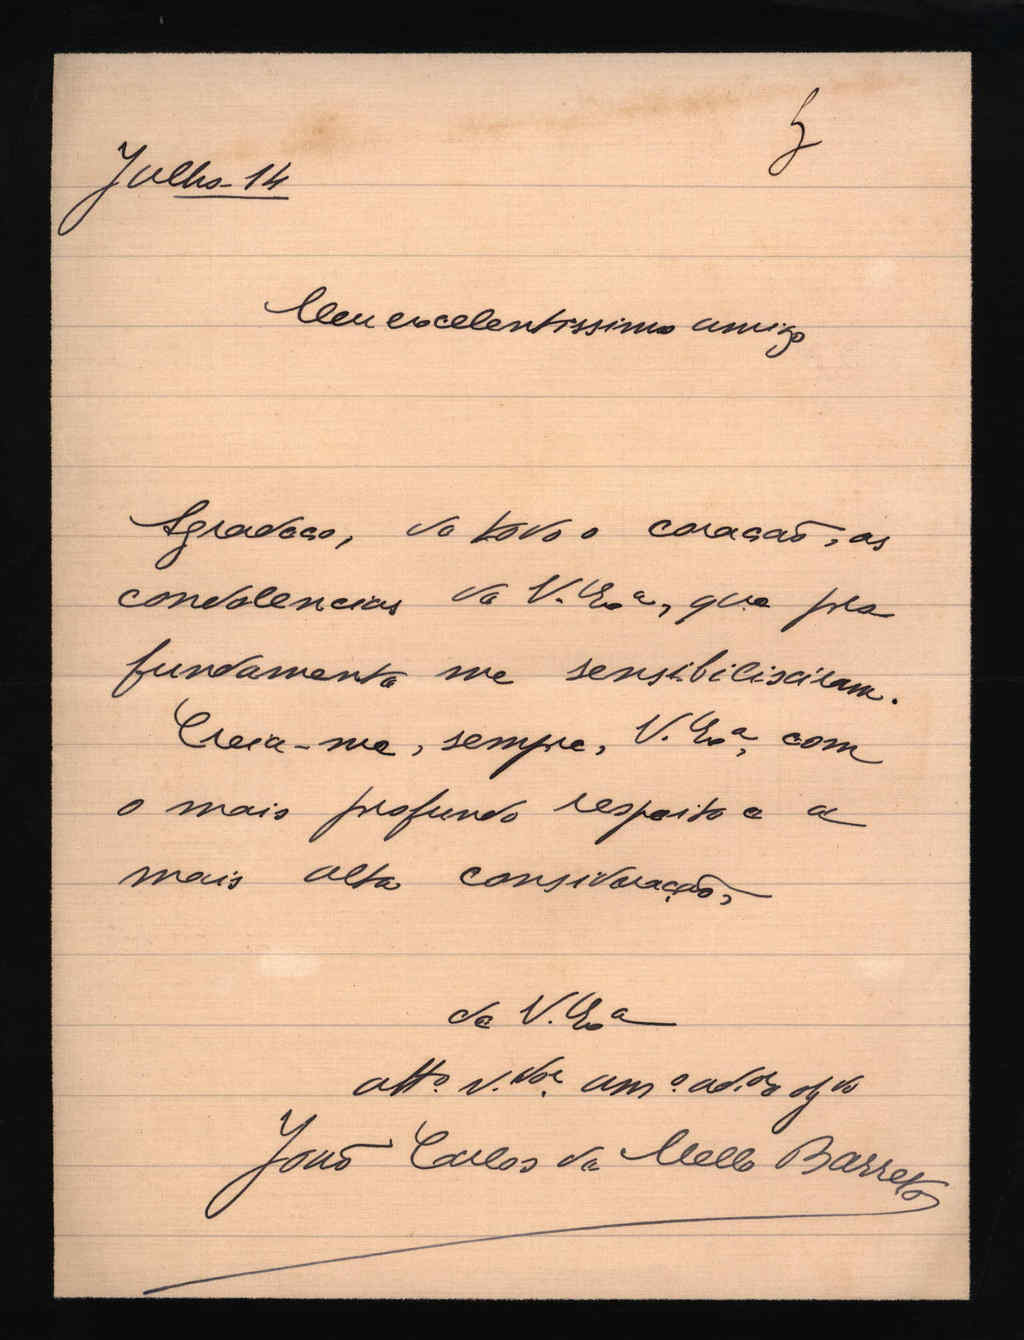 5
Julho-14
Meu excelentissimo amigo
Agradeço, de todo o coração, as
condolencias de V. Ex.ª, que pro
fundamente me sensibilisaram.
Creia-me, sempre, V. Ex.ª, com
o mais profundo respeito e a
mais alta consideração,
de V. Ex.ª
att.º v.dor am.º ad.or obg.do
João Carlos de Mello Barreto